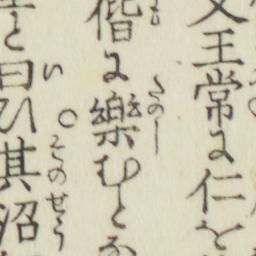 文王常に仁を
偕に樂むとな
と曰ひ其沼